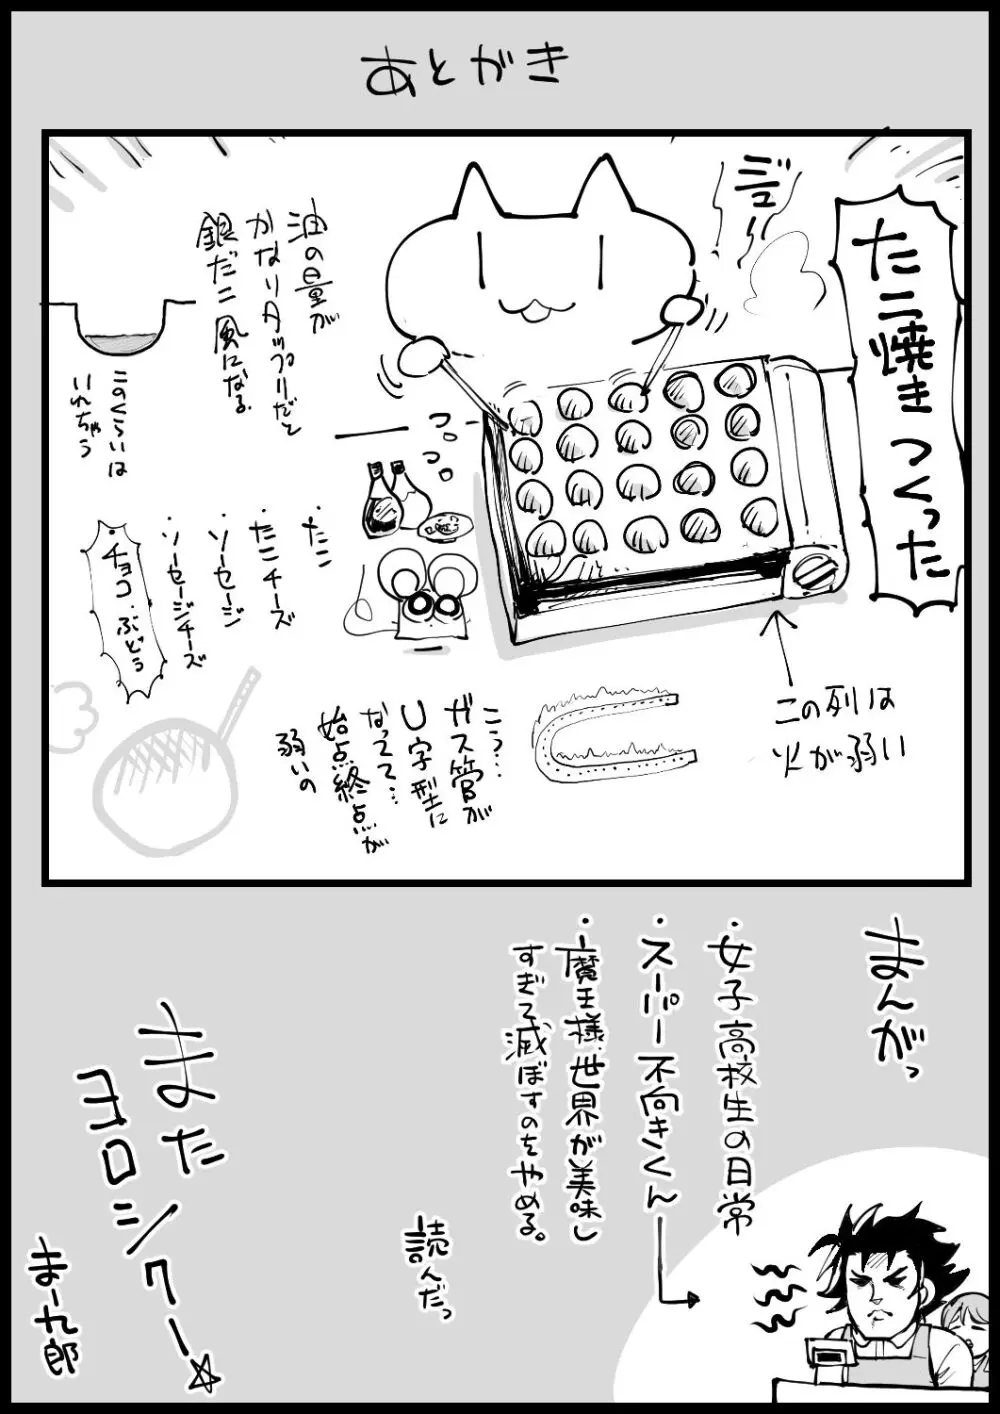 あとがき
たこ焼きつくった
ジュー
油の量が
かなりタップリだと
銀だこ風になる
このくらいは
いれちゃう
つっ
つっ
・たこ
・たこチーズ
・ソーセージ
・ソーセージチーズ
・チョコ・ぶどう
この列は
火が弱い
こう…
ガス管が
U字型に
なってて…
始点終点が
弱いの
まんがっ
・女子高校生の日常
・スーパー不向きくん
・魔王様、世界が美味し
すぎて滅ぼすのをやめる。
読んだっ
また
ヨロシクー☆
まー九郎